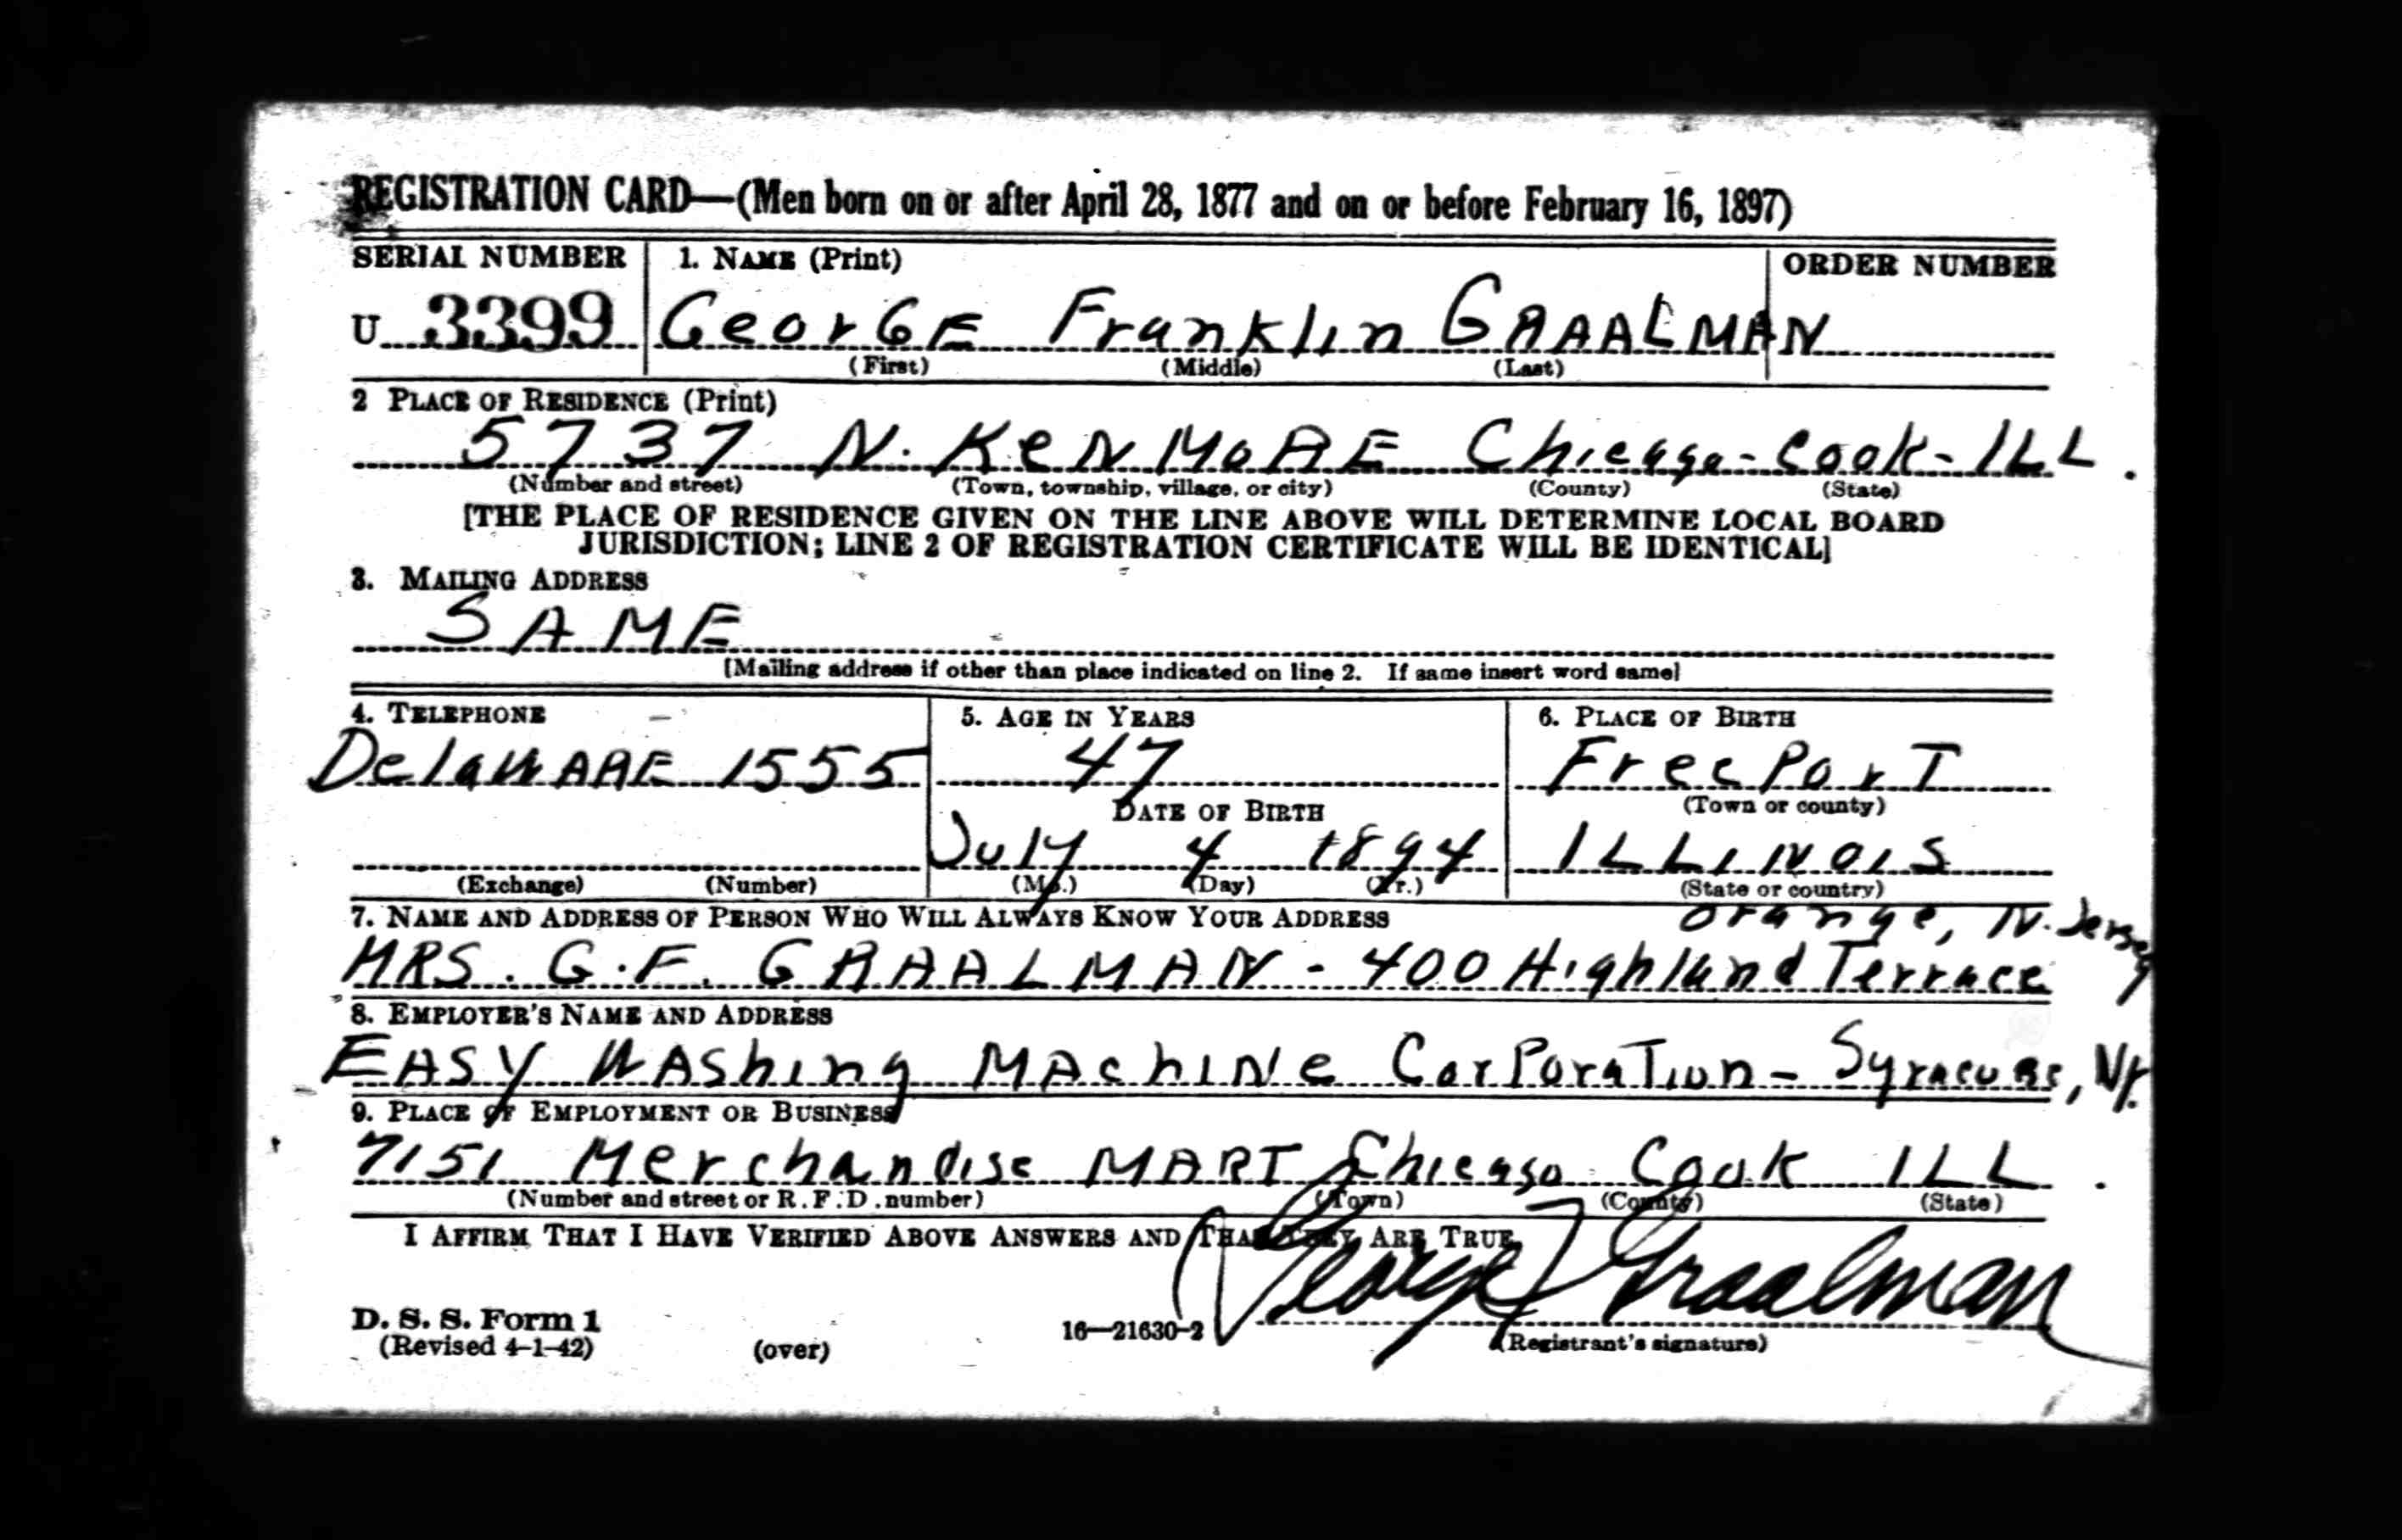 REGISTRATION CARD—(Men born on or after April 28, 1877 and on or before February 16, 1897)
SERIAL NUMBER 1. NAME (Print) ORDER NUMBER
U 3399 GeorGE Franklin GRAALMAN
(First) (Middle) (Last)
2 PLACE OF RESIDENCE (Print)
5737 N. KeNMORE Chicago-Cook-ILL.
(Number and street) (Town, township, village, or city) (County) (State)
[THE PLACE OF RESIDENCE GIVEN ON THE LINE ABOVE WILL DETERMINE LOCAL BOARD
JURISDICTION; LINE 2 OF REGISTRATION CERTIFICATE WILL BE IDENTICAL]
3. MAILING ADDRESS
SAME
[Mailing address if other than place indicated on line 2. If same insert word same]
4. TELEPHONE 5. AGE IN YEARS 6. PLACE OF BIRTH
DelaWARE 1555 47 FreePorT
(Town or county)
DATE OF BIRTH
July 4 1894 ILLINOIS
(Exchange) (Number) (Mo.) (Day) (Yr.) (State or country)
7. NAME AND ADDRESS OF PERSON WHO WILL ALWAYS KNOW YOUR ADDRESS
Orange, N. Jersey
MRS. G.F. GRAALMAN - 400 Highland Terrace
8. EMPLOYER'S NAME AND ADDRESS
EASY WAShing MAchINe CorPoraTion - Syracuse, NY.
9. PLACE OF EMPLOYMENT OR BUSINESS
7151 Merchandise MART Chicago Cook ILL.
(Number and street or R. F. D. number) (Town) (County) (State)
I AFFIRM THAT I HAVE VERIFIED ABOVE ANSWERS AND THAT THEY ARE TRUE.
George F Graalman
D. S. S. Form 1
(Revised 4-1-42) (over) 16—21630-2 (Registrant's signature)